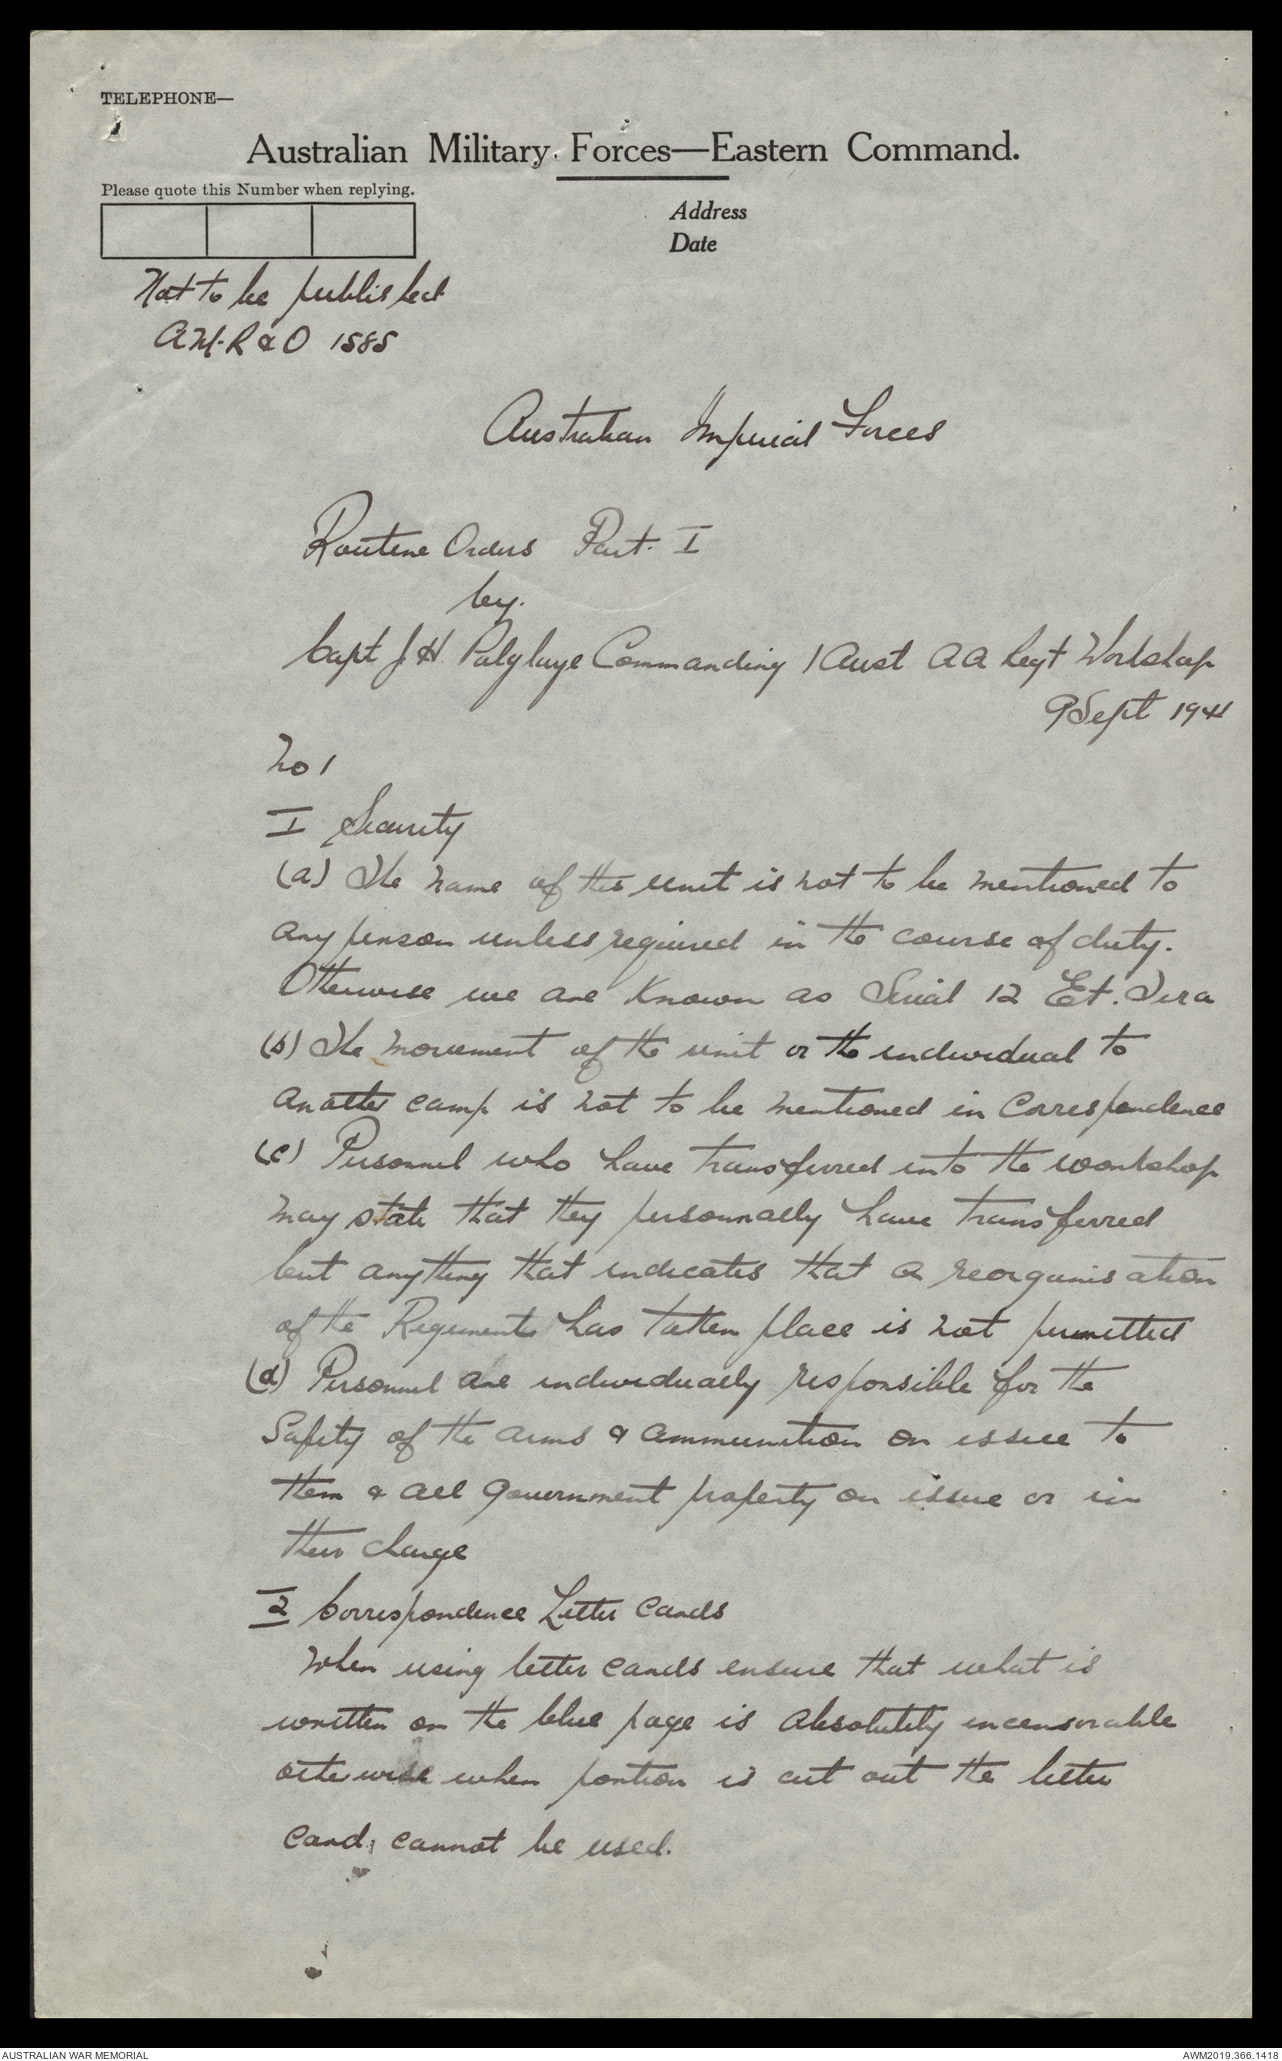 TELEPHONE—
Australian Military Forces—Eastern Command.
Please quote this Number when replying.
Address
Date
Not to be published
A.M.R & O 1585
Australian Imperial Forces
Routine Orders Part. I
by.
Capt J. H. Polglaye Commanding 1 Aust AA Regt Workshop
9 Sept 1941
No 1
I Security
(a) The name of this unit is not to be mentioned to
any person unless required in the course of duty.
Otherwise we are known as Serial 12 Et. Vera
(b) The movement of the unit or the individual to
another camp is not to be mentioned in correspondence
(c) Personnel who have transferred into the workshop
may state that they personnally have transferred
but anything that indicates that a reorganisation
of the Regiments has taken place is not permitted
(d) Personnel are individually responsible for the
Safety of the arms & ammunition on issue to
them & all Government property on issue or in
their charge
2 Correspondence Letter Cards
When using letter cards ensure that what is
written on the blue page is absolutely incensorable
otherwise when portion is cut out the letter
card, cannot be used.
AUSTRALIAN WAR MEMORIAL
AWM2019.366.1418